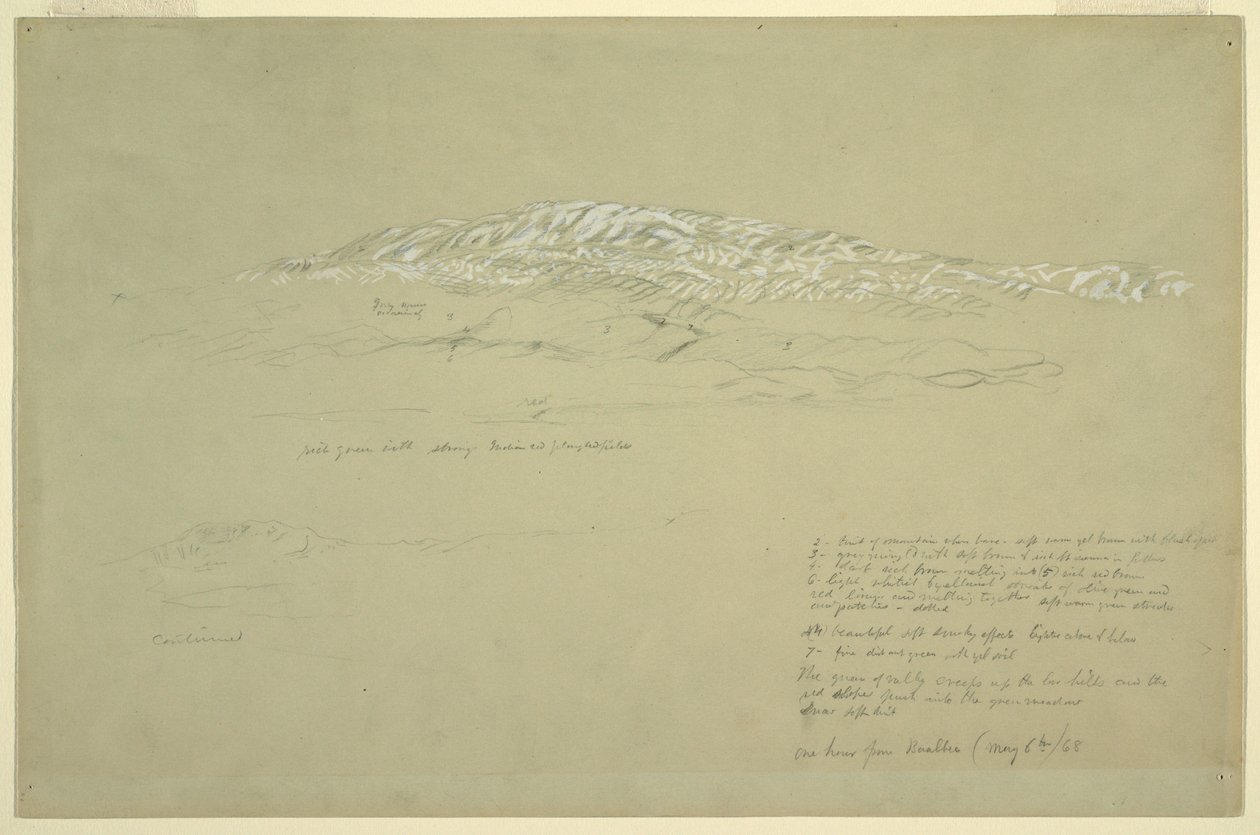 Grey green
3
2
4
5
6
3
2
7
2
red
rich green with strong Indian red ploughed fields
2 - tint of mountain when bare - soft warm yel brown with
3 - grey with soft brown & rich
4 - dark rich brown melting into (5) rich red brown
6 - light whitish yellowish streaks of olive green and
red lines and melting together soft warm green streaks
and patches - dotted
(4) beautiful soft smoky effects lighter above & below
7 - fine distant green with yel soil
The green of vally creeps up the low hills and the
red slopes push into the green meadow
Snow soft tint
Continued
one hour from Baalbec (May 6th/68